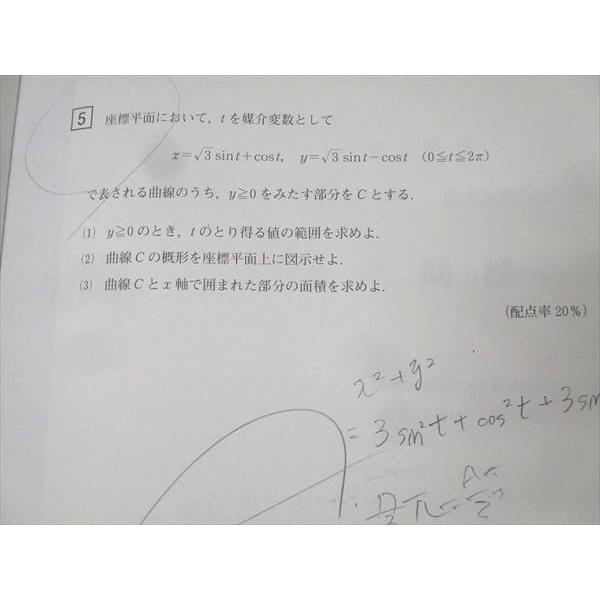 5 座標平面において, tを媒介変数として
x=√3 sint+cost, y=√3 sint−cost (0≦t≦2π)
で表される曲線のうち, y≧0をみたす部分をCとする.
(1) y≧0のとき, tのとり得る値の範囲を求めよ.
(2) 曲線Cの概形を座標平面上に図示せよ.
(3) 曲線Cとx軸で囲まれた部分の面積を求めよ.
(配点率20%)
x²+y²
= 3 sin²t + cos²t + 3 sin